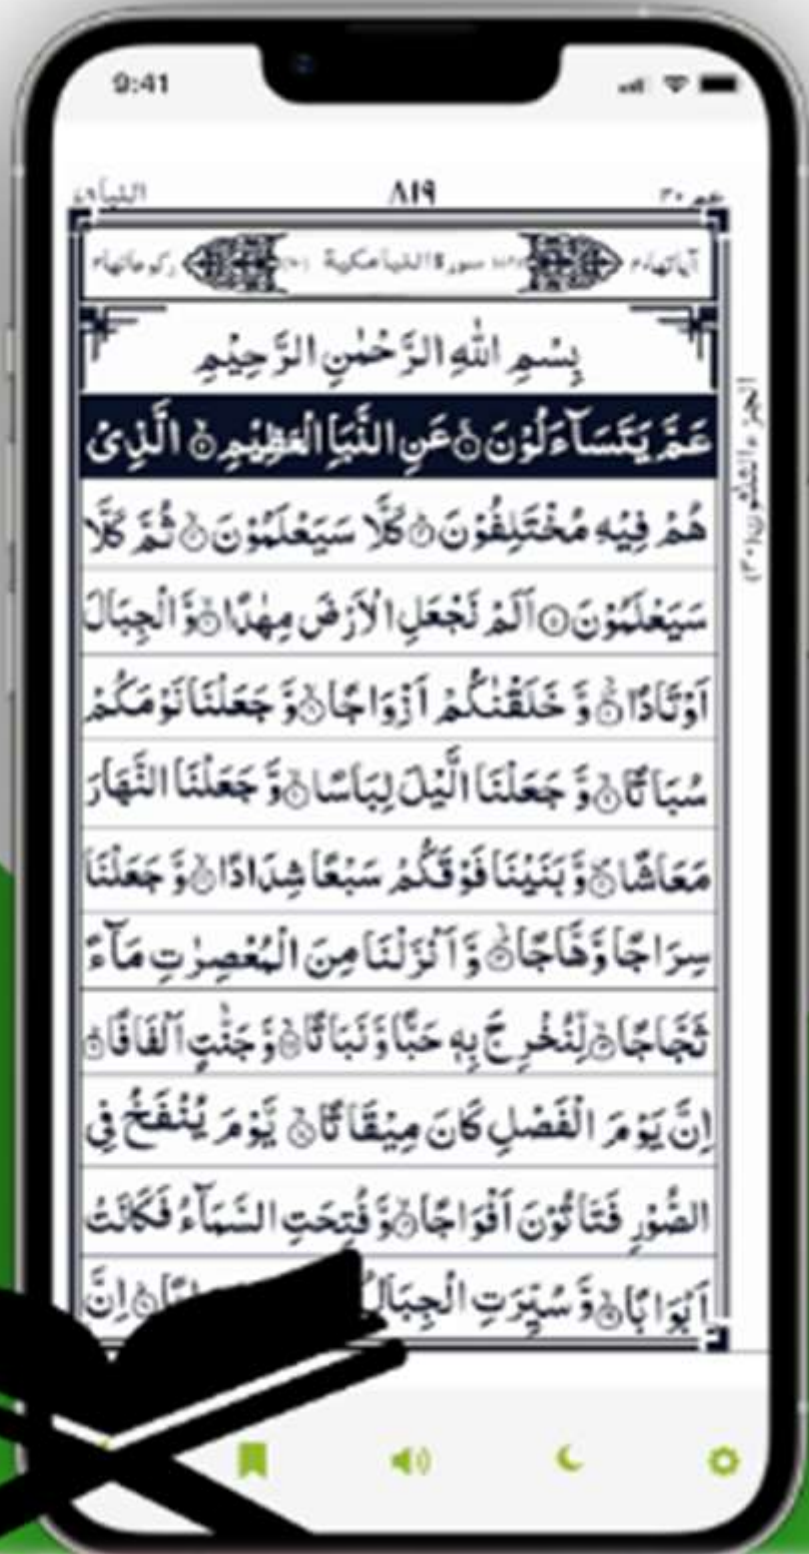 9:41
عم ٣٠
٨١٩
النبأ
سورة النبأ مكية
بِسْمِ اللّٰهِ الرَّحْمٰنِ الرَّحِيْمِ
عَمَّ يَتَسَآءَلُوْنَ ۚ عَنِ النَّبَاِ الْعَظِيْمِ ۙ الَّذِىْ
هُمْ فِيْهِ مُخْتَلِفُوْنَ ؕ كَلَّا سَيَعْلَمُوْنَ ۙ ثُمَّ كَلَّا
سَيَعْلَمُوْنَ اَلَمْ نَجْعَلِ الْاَرْضَ مِهٰدًا ۙ وَّ الْجِبَالَ
اَوْتَادًا ۙ وَّ خَلَقْنٰكُمْ اَزْوَاجًا ۙ وَّ جَعَلْنَا نَوْمَكُمْ
سُبَاتًا ۙ وَّ جَعَلْنَا الَّيْلَ لِبَاسًا ۙ وَّ جَعَلْنَا النَّهَارَ
مَعَاشًا ۪ وَّ بَنَيْنَا فَوْقَكُمْ سَبْعًا شِدَادًا ۙ وَّ جَعَلْنَا
سِرَاجًا وَّهَّاجًا ۪ۙ وَّ اَنْزَلْنَا مِنَ الْمُعْصِرٰتِ مَآءً
ثَجَّاجًا ۙ لِّنُخْرِجَ بِهٖ حَبًّا وَّ نَبَاتًا ۙ وَّ جَنّٰتٍ اَلْفَافًا ؕ
اِنَّ يَوْمَ الْفَصْلِ كَانَ مِيْقَاتًا ۙ يَّوْمَ يُنْفَخُ فِى
الصُّوْرِ فَتَاْتُوْنَ اَفْوَاجًا ۙ وَّ فُتِحَتِ السَّمَآءُ فَكَانَتْ
اَبْوَابًا ۙ وَّ سُيِّرَتِ الْجِبَالُ اِنَّ
الجزء الثلثون (٣٠)